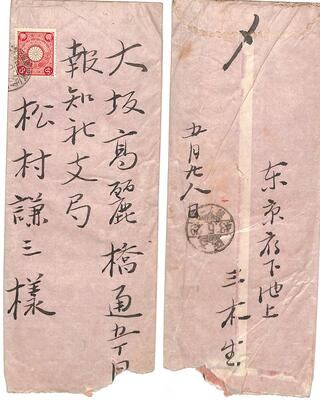 大坂高麗橋通五丁目
報知社支局
松村謙三様
〆
東京府下池上
三木生
五月廿八日